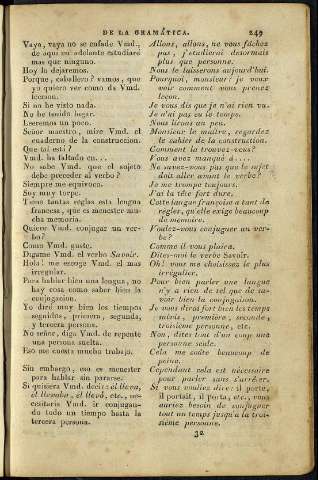 DE LA GRAMÁTICA. 249
Vaya, vaya no se enfade Vmd.,
de aquí en adelante estudiaré
mas que ninguno.
Hoy la dejaremos.
Porque, caballero? vamos, que
yo quiero ver como da Vmd.
leccion.
Si no he visto nada.
No he tenido lugar.
Leeremos un poco.
Señor maestro, mire Vmd. el
cuaderno de la construccion.
Que tal está?
Vmd. ha faltado en...
No sabe Vmd. que el sujeto
debe preceder al verbo?
Siempre me equivoco.
Soy muy torpe.
Tiene tantas reglas esta lengua
francesa, que es menester mucha
memoria.
Quiere Vmd. conjugar un verbo?
Como Vmd. guste.
Dígame Vmd. el verbo Savoir.
Hola! me escoge Vmd. el mas
irregular.
Para hablar bien una lengua, no
hay cosa como saber bien la
conjugacion.
Yo diré muy bien los tiempos
seguidos, primera, segunda,
y tercera persona.
No señor, diga Vmd. de repente
una persona suelta.
Eso me cuesta mucho trabajo.
Sin embargo, eso es menester
para hablar sin pararse.
Si quisiera Vmd. decir: él lleva,
él llevaba, él llevó, etc., necesitaria
Vmd. ir conjugando
todo un tiempo hasta la
tercera persona.
Allons, allons, ne vous fâchez
pas, j'étudierai desormais
plus que personne.
Nous le laisserons aujourd'hui.
Pourquoi, monsieur? je veux
voir comment vous prenez
leçon.
Je vous dis que je n'ai rien vu.
Je n'ai pas eu le temps.
Nous lirons un peu.
Monsieur le maître, regardez
le cahier de la construction.
Comment la trouvez-vous?
Vous avez manqué à....
Ne savez-vous pas que le sujet
doit aller avant le verbe?
Je me trompe toujours.
J'ai la tête fort dure.
Cette langue françoise a tant de
règles, qu'elle exige beaucoup
de mémoire.
Voulez-vous conjuguer un verbe?
Comme il vous plaira.
Dites-moi le verbe Savoir.
Oh! vous me choisissez le plus
irrégulier.
Pour bien parler une langue
il n'y a rien de tel que de savoir
bien la conjugaison.
Je vous dirai fort bien les temps
suivis, première, seconde,
troisième personne, etc.
Non, dites tout d'un coup une
personne seule.
Cela me coûte beaucoup de
peine.
Cependant cela est nécessaire
pour parler sans s'arrêter.
Si vous vouliez dire: il porte,
il portait, il porta, etc., vous
auriez besoin de conjuguer
tout un temps jusqu'à la troisième
personne.
32